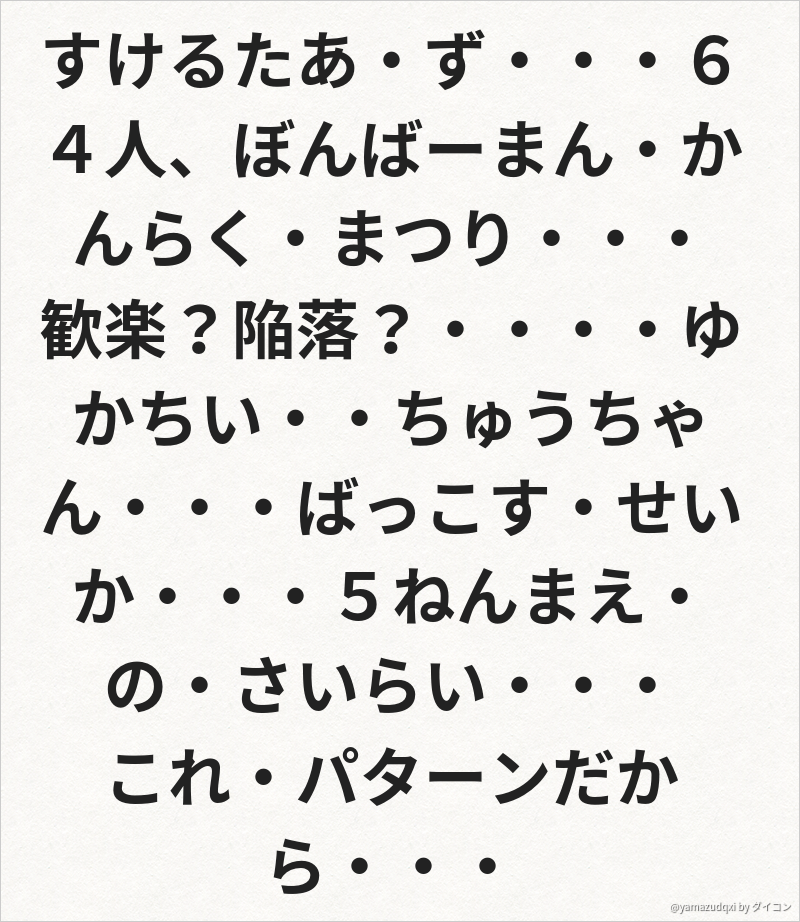 すけるたあ・ず・・・６
４人、ぼんばーまん・か
んらく・まつり・・・
歓楽？陥落？・・・・ゆ
かちい・・ちゅうちゃ
ん・・・ばっこす・せい
か・・・５ねんまえ・
の・さいらい・・・
これ・パターンだか
ら・・・
@yamazudqxi by ダイコン